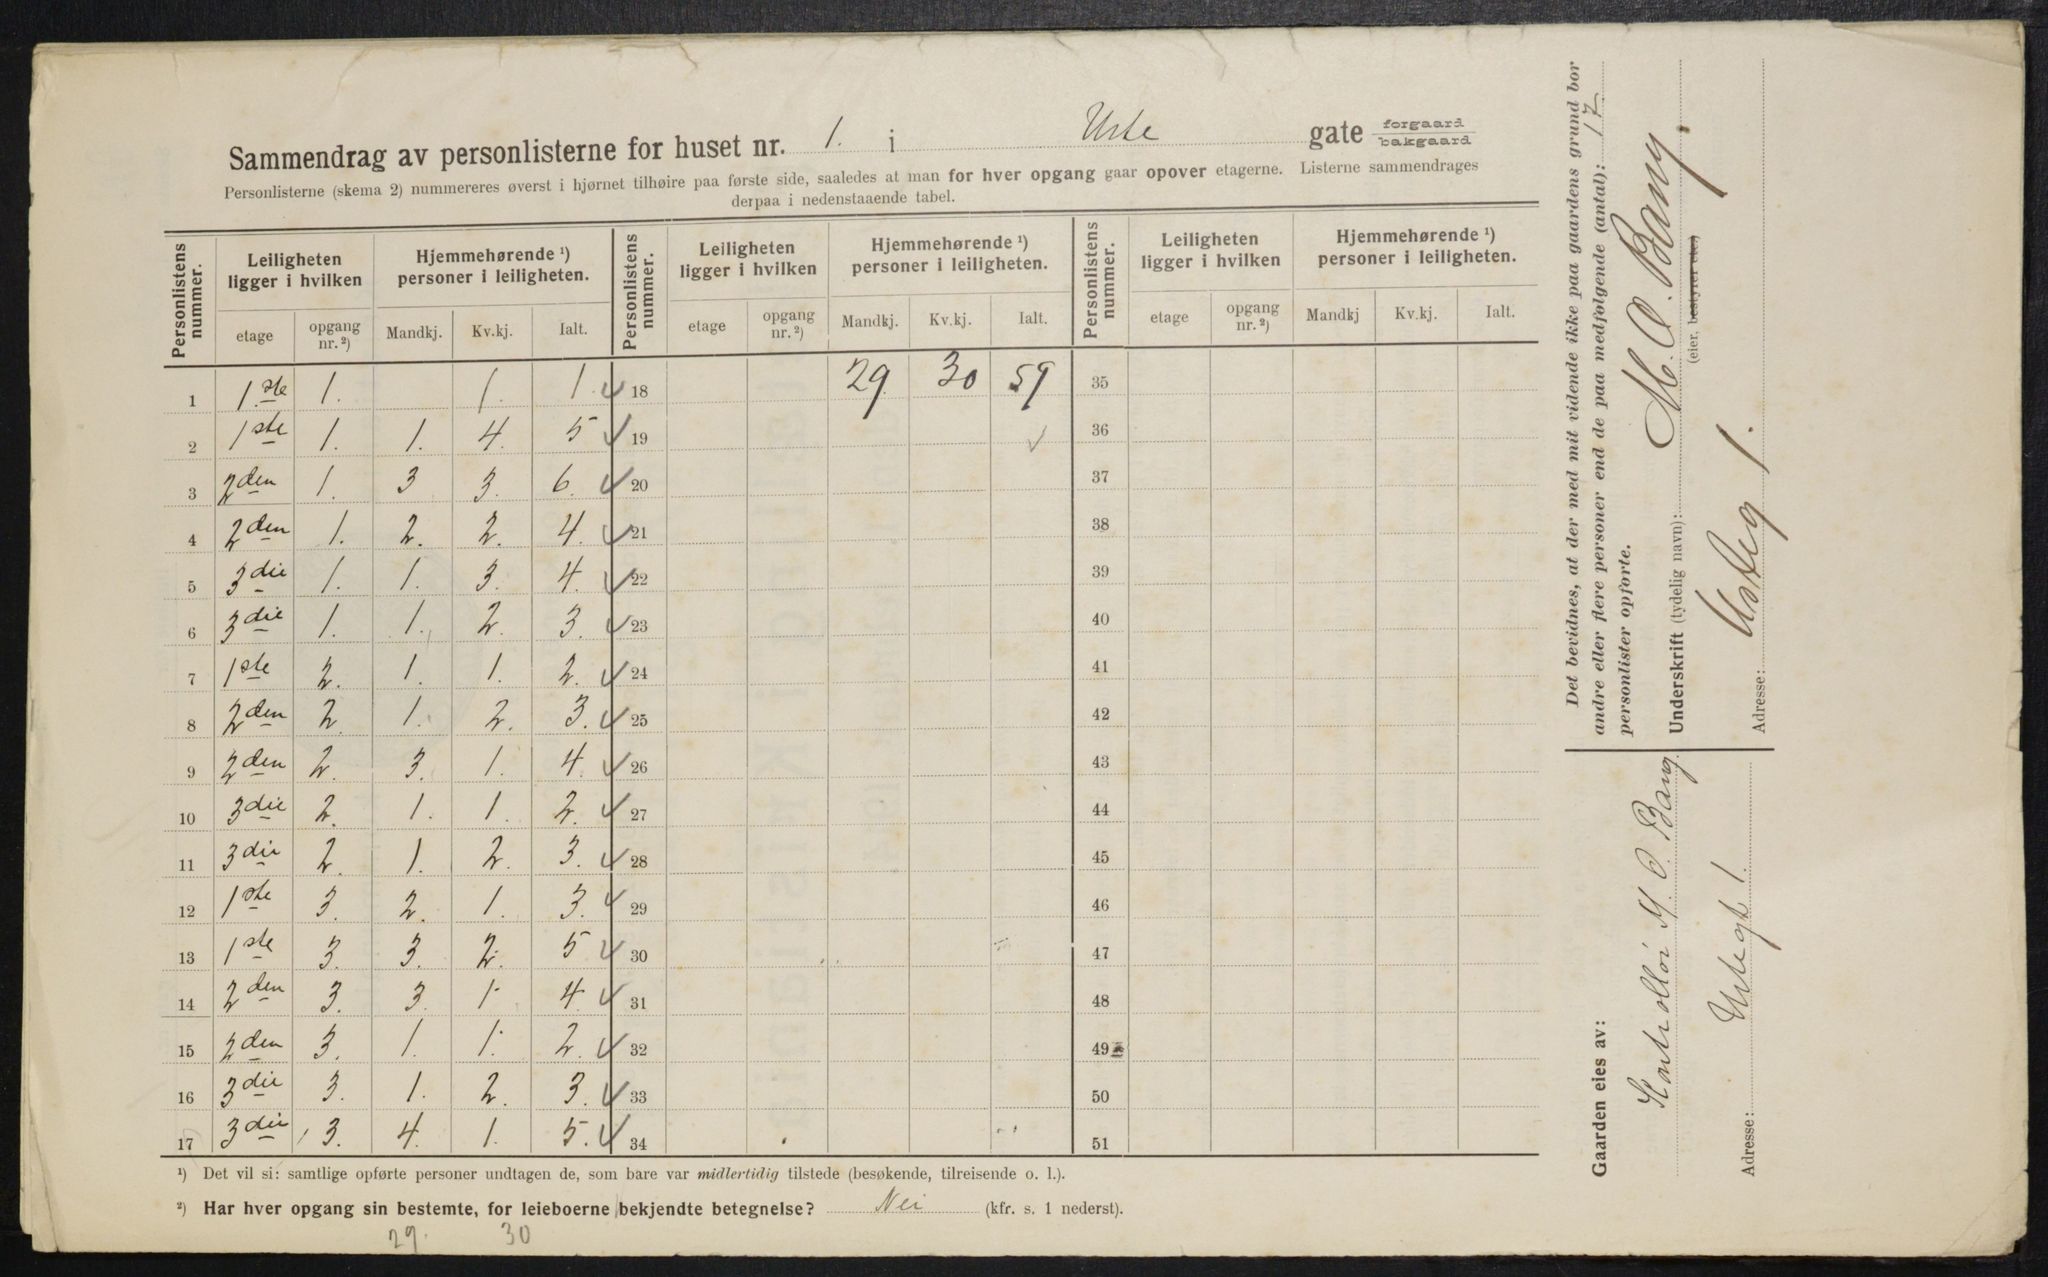 Sammendrag av personlisterne for huset nr. 1. i Urte gate forgaard bakgaard
Personlisterne (skema 2) nummereres øverst i hjørnet tilhøire paa første side, saaledes at man for hver opgang gaar opover etagerne. Listerne sammendrages
derpaa i nedenstaaende tabel.
Personlistens nummer. Leiligheten ligger i hvilken Hjemmehørende ¹) personer i leiligheten. Personlistens nummer. Leiligheten ligger i hvilken Hjemmehørende ¹) personer i leiligheten. Personlistens nummer. Leiligheten ligger i hvilken Hjemmehørende ¹) personer i leiligheten.
etage opgang nr. ²) Mandkj. Kv.kj. Ialt. etage opgang nr. ²) Mandkj. Kv.kj. Ialt. etage opgang nr. ²) Mandkj Kv.kj. Ialt.
1 1.ste 1. 1. 1. ✓ 18 29. 30 59 35
2 1ste 1. 1. 4. 5 ✓ 19 ✓ 36
3 2den 1. 3 3. 6. ✓ 20 37
4 2den 1. 2. 2. 4. ✓ 21 38
5 3die 1. 1. 3. 4. ✓ 22 39
6 3die 1. 1. 2. 3. ✓ 23 40
7 1ste 2. 1. 1. 2. ✓ 24 41
8 2den 2. 1. 2. 3. ✓ 25 42
9 2den 2. 3. 1. 4. ✓ 26 43
10 3die 2. 1. 1. 2. ✓ 27 44
11 3die 2. 1. 2. 3. ✓ 28 45
12 1ste 3. 2. 1. 3. ✓ 29 46
13 1ste 3. 3. 2. 5 ✓ 30 47
14 2den 3. 3. 1. 4. ✓ 31 48
15 2den 3. 1. 1. 2. ✓ 32 49
16 3die 3. 1. 2. 3. ✓ 33 50
17 3die 3. 4. 1. 5. ✓ 34 51
¹) Det vil si: samtlige opførte personer undtagen de, som bare var midlertidig tilstede (besøkende, tilreisende o. l.).
²) Har hver opgang sin bestemte, for leieboerne bekjendte betegnelse? Nei (kfr. s. 1 nederst).
29. 30
Det bevidnes, at der med mit vidende ikke paa gaardens grund bor
andre eller flere personer end de paa medfølgende (antal): 17
personlister opførte.
Underskrift (tydelig navn): M. O. Bang.
(eier, bestyrer etc.)
Adresse: Urteg 1.
Gaarden eies av:
Kontrollør M. O. Bang.
Adresse: Urtegt 1.